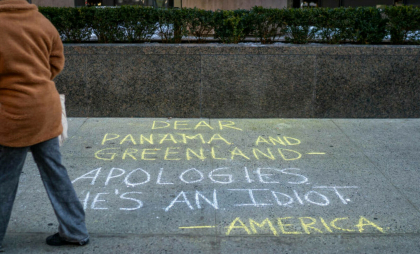 DEAR
PANAMA AND
GREENLAND—
APOLOGIES
HE'S AN IDIOT
— AMERICA